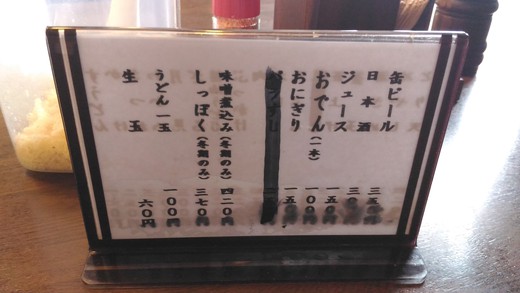 缶ビール 三五
日本酒 三
ジュース 一五
おでん(一本) 一〇〇
おにぎり 一五
味噌煮込み(冬期のみ) 四二〇円
しっぽく(冬期のみ) 三七〇円
うどん一玉 一〇〇円
生玉 六〇円